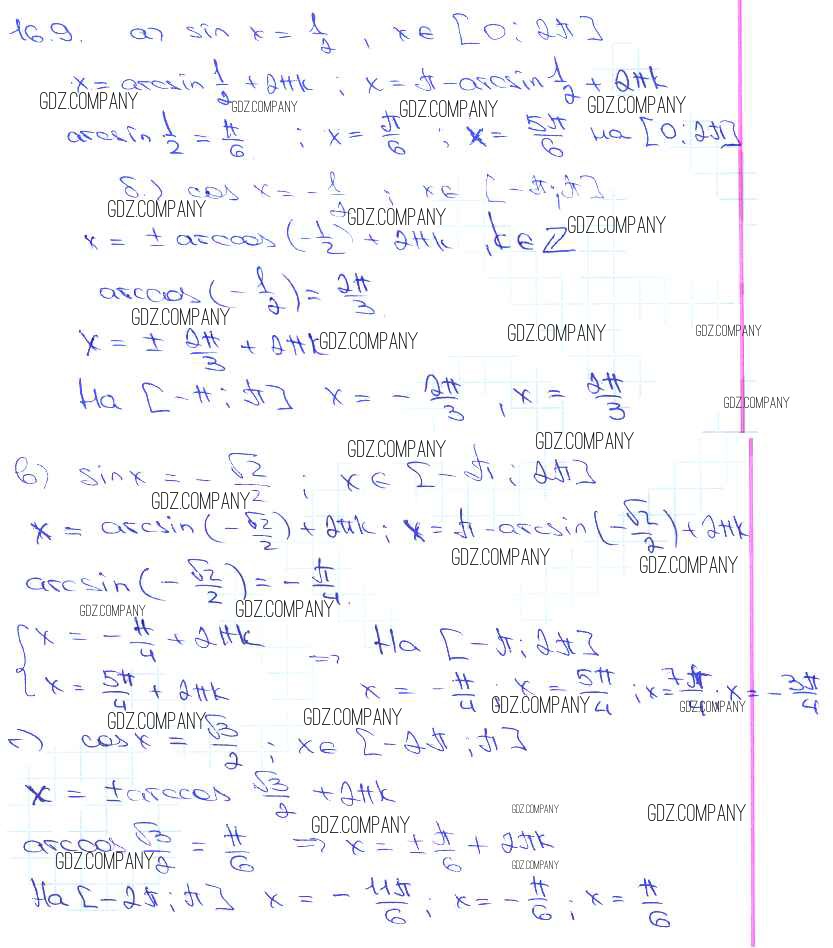 16.9. а) sin x = 1/2 , x ∈ [0; 2π]
x = arcsin 1/2 + 2πk ; x = π - arcsin 1/2 + 2πk
GDZ.COMPANY GDZ.COMPANY GDZ.COMPANY GDZ.COMPANY
arcsin 1/2 = π/6 ; x = π/6 ; x = 5π/6 на [0; 2π]
б.) cos x = - 1/2 ; x ∈ [-π; π]
GDZ.COMPANY GDZ.COMPANY GDZ.COMPANY
x = ± arccos (- 1/2) + 2πk , k ∈ Z
arccos (- 1/2) = 2π/3
GDZ.COMPANY
x = ± 2π/3 + 2πk GDZ.COMPANY GDZ.COMPANY GDZ.COMPANY
На [-π; π] x = - 2π/3 , x = 2π/3
GDZ.COMPANY
GDZ.COMPANY GDZ.COMPANY
в) sin x = - √2/2 ; x ∈ [-π; 2π]
GDZ.COMPANY
x = arcsin (- √2/2) + 2πk; x = π - arcsin (- √2/2) + 2πk
GDZ.COMPANY GDZ.COMPANY
arcsin (- √2/2) = - π/4
GDZ.COMPANY GDZ.COMPANY
{ x = - π/4 + 2πk => На [-π; 2π]
x = 5π/4 + 2πk x = - π/4 ; x = 5π/4 ; x = 7π/4 ; x = - 3π/4
GDZ.COMPANY GDZ.COMPANY GDZ.COMPANY GDZ.COMPANY
г) cos x = √3/2 ; x ∈ [-2π; π]
x = ± arccos √3/2 + 2πk
GDZ.COMPANY GDZ.COMPANY GDZ.COMPANY
arccos √3/2 = π/6 => x = ± π/6 + 2πk
GDZ.COMPANY GDZ.COMPANY
На [-2π; π] x = - 11π/6 ; x = - π/6 ; x = π/6